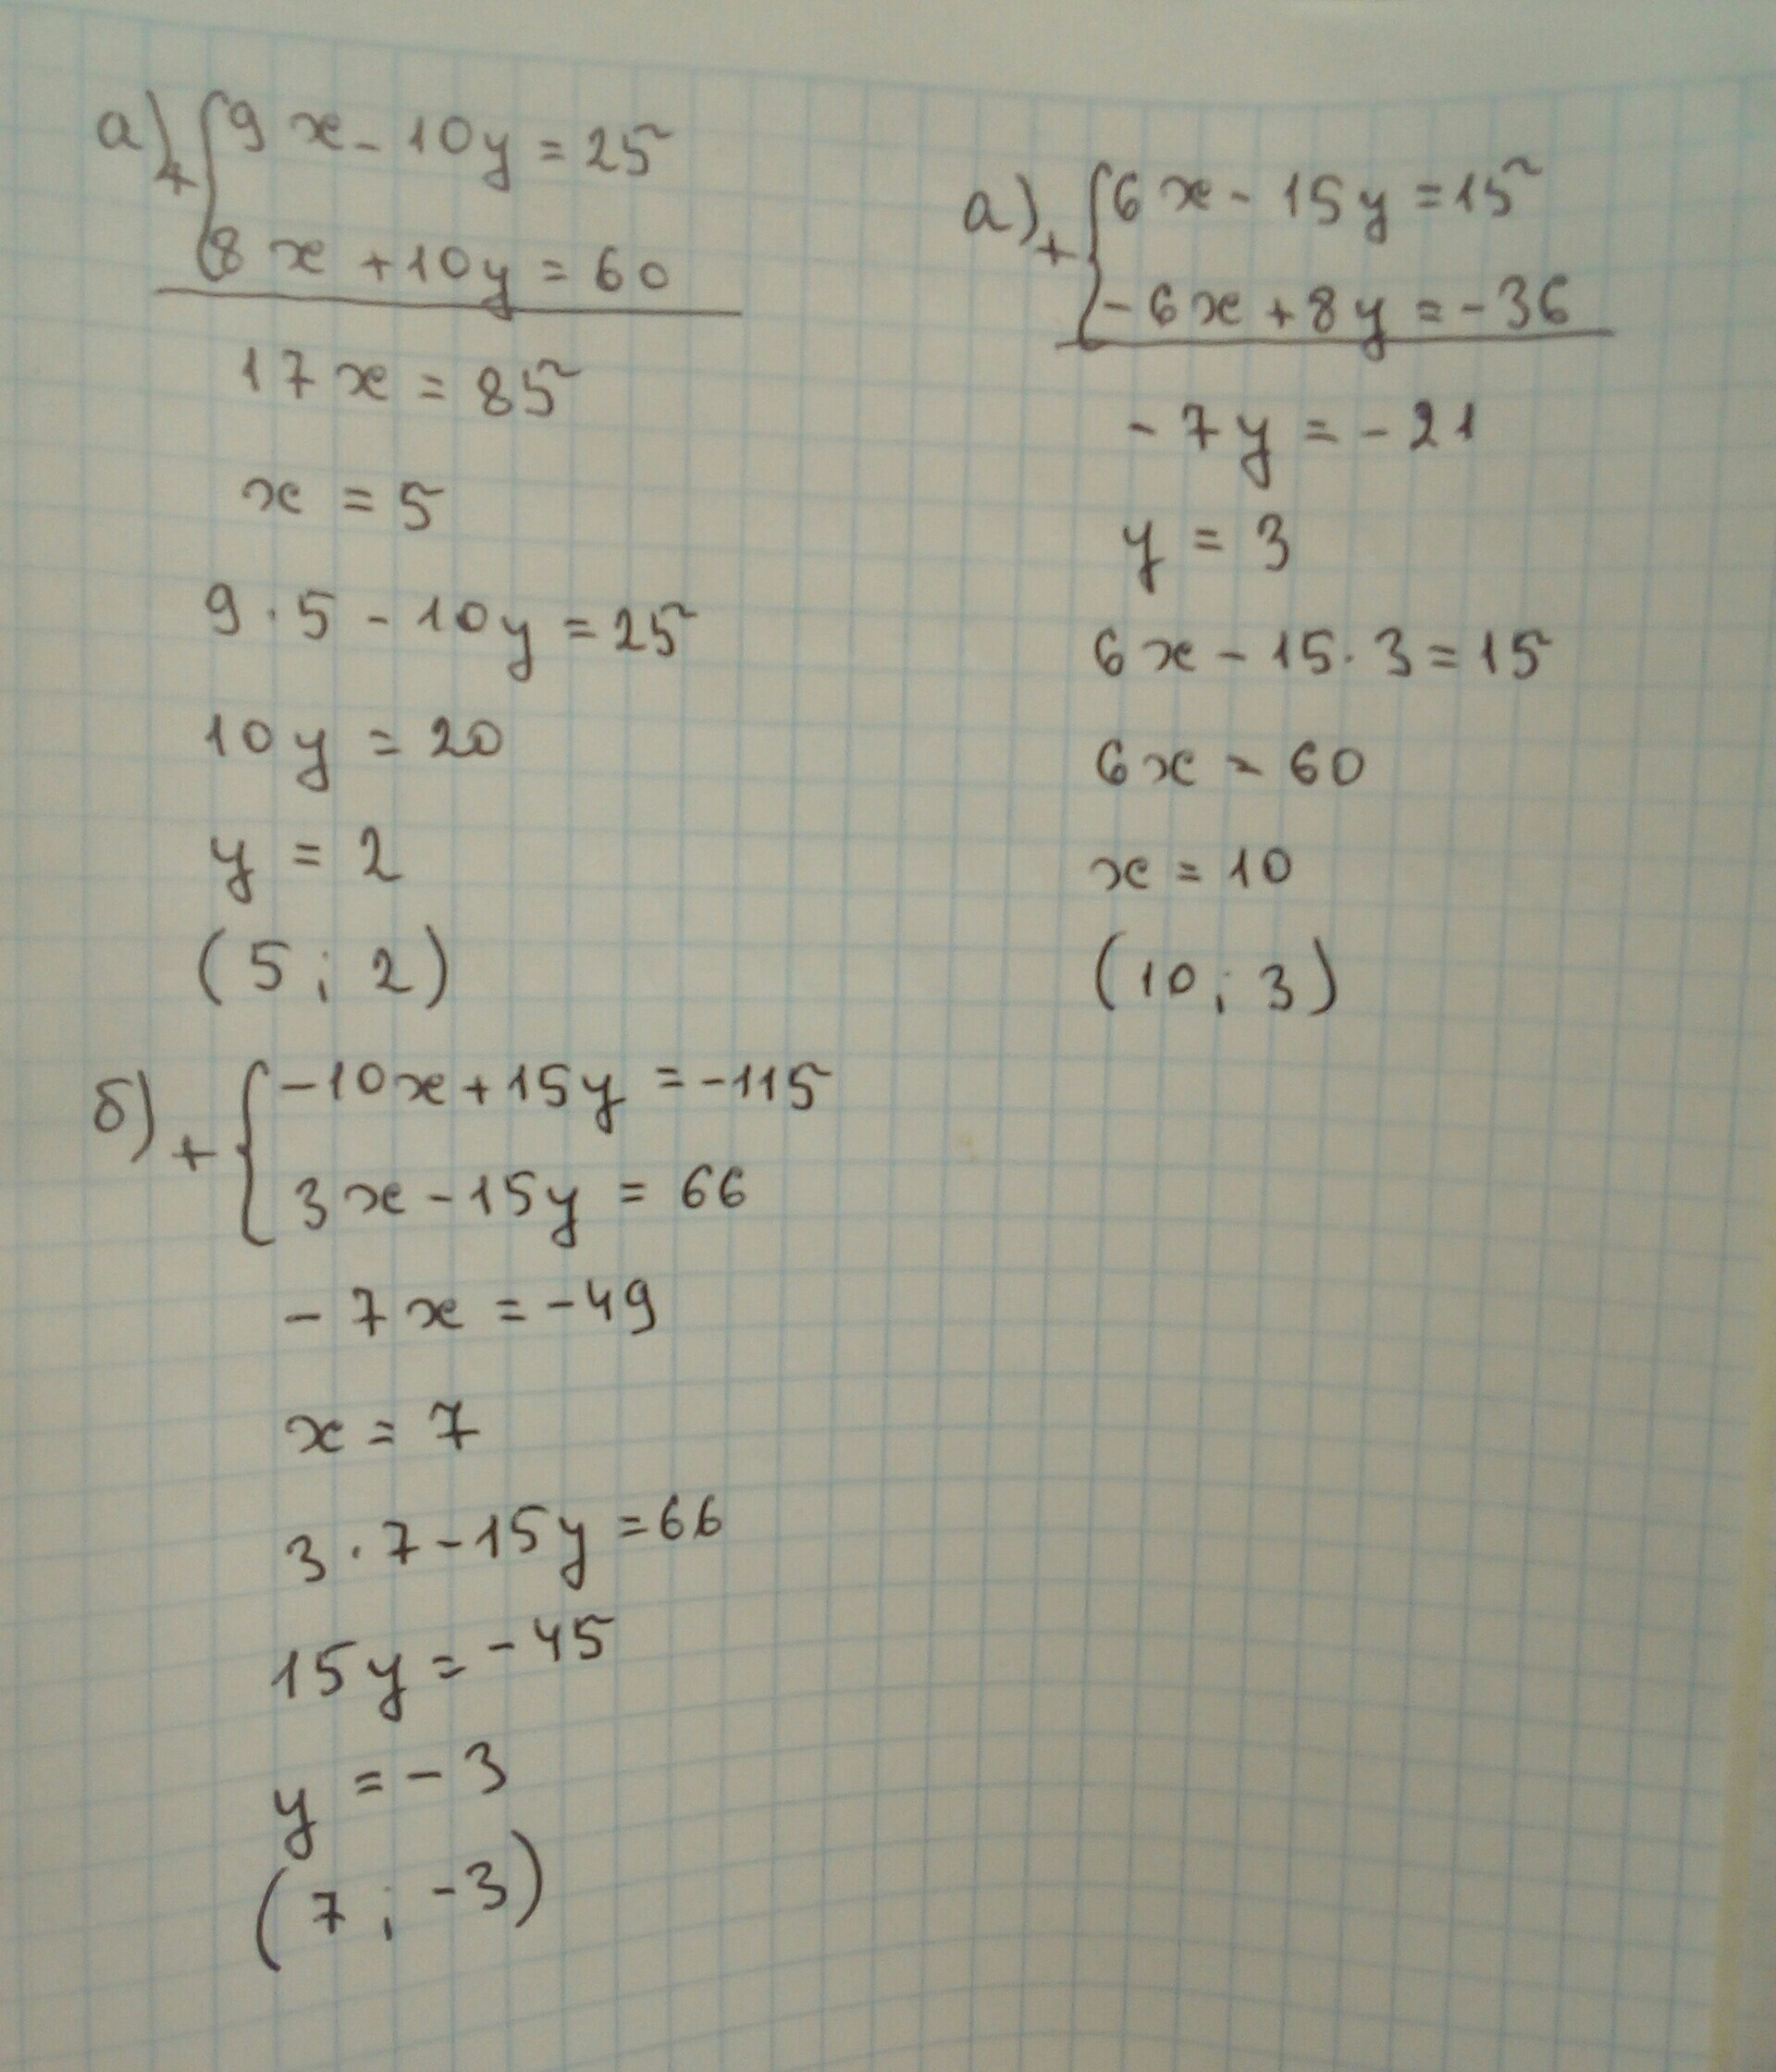 а) + { 9x - 10y = 25
8x + 10y = 60
17x = 85
x = 5
9 · 5 - 10y = 25
10y = 20
y = 2
(5; 2)
б) + { -10x + 15y = -115
3x - 15y = 66
-7x = -49
x = 7
3 · 7 - 15y = 66
15y = -45
y = -3
(7; -3)
а) + { 6x - 15y = 15
-6x + 8y = -36
-7y = -21
y = 3
6x - 15 · 3 = 15
6x = 60
x = 10
(10; 3)